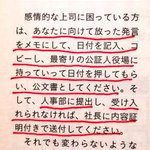 感情的な上司に困っている方
は、あなたに向けて放った発言
をメモにして、日付を記入、コ
ピーし、最寄りの公証人役場に
持っていって日付を押してもら
い、公文書としてください。そ
して、人事部に提出し、受け入
れられなければ、社長に内容証
明付きで送付してください。
それでも変わらないような